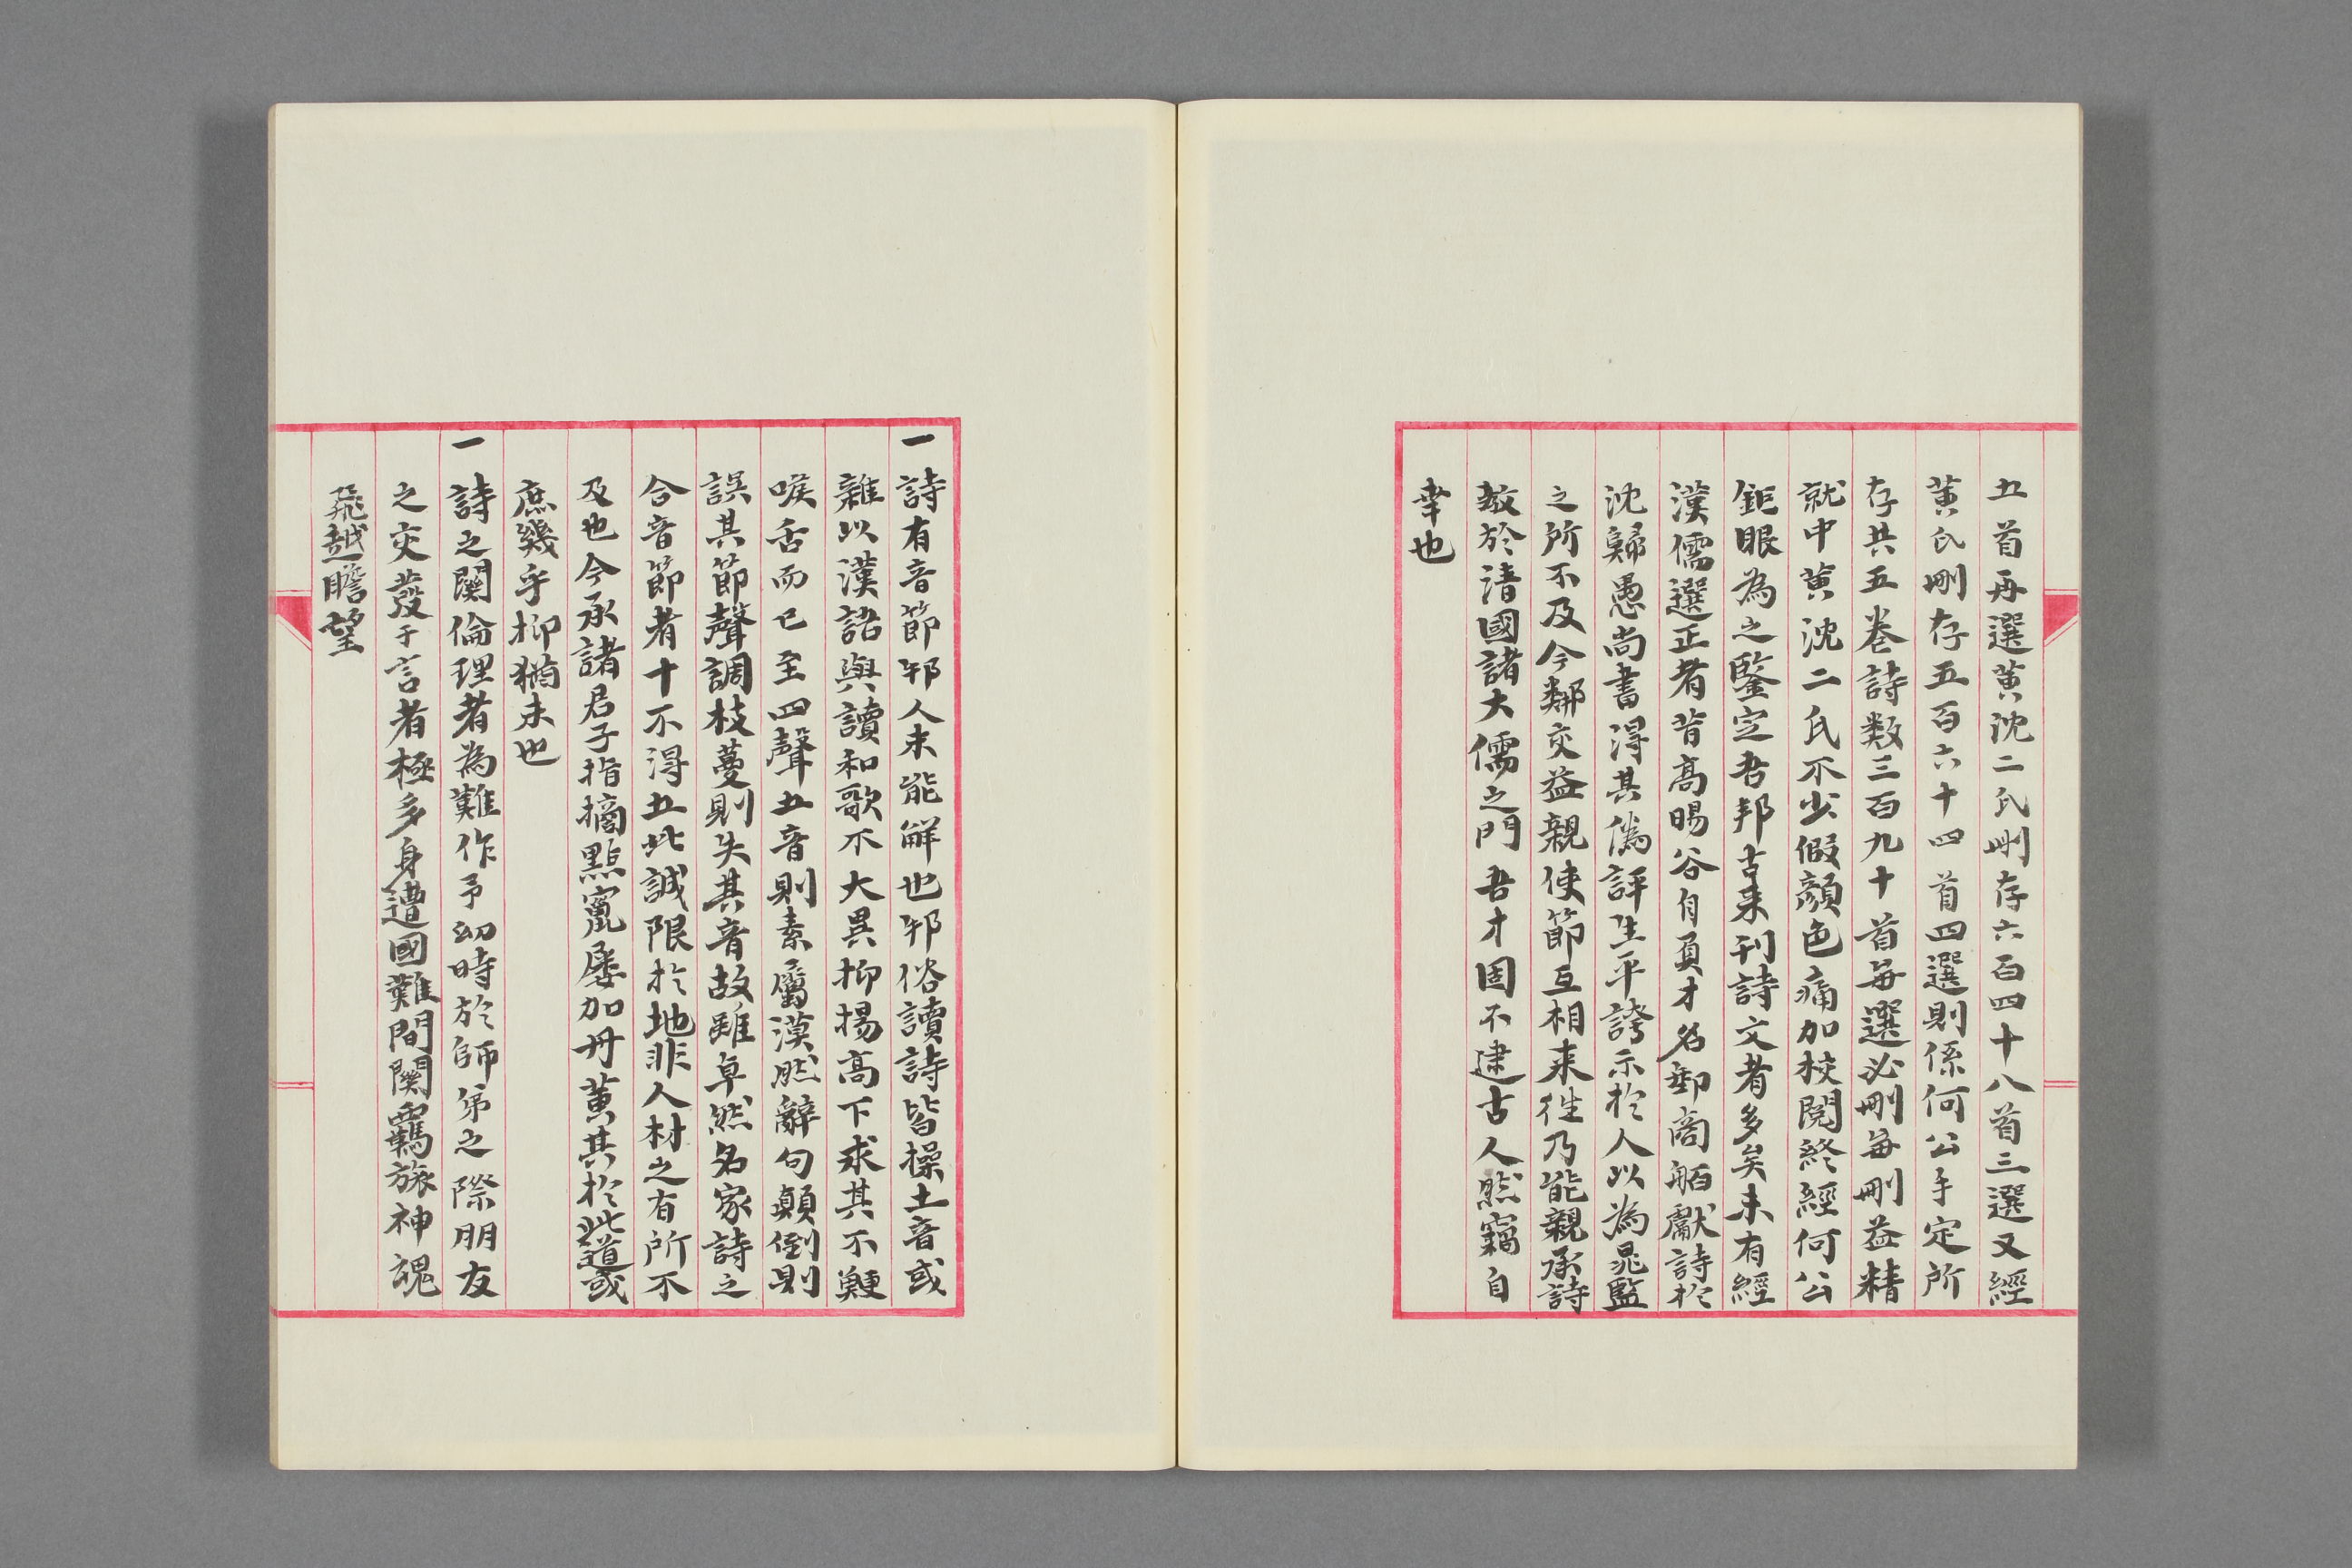 五首再選黄沈二氏刪存六百四十八首三選又經
黄氏刪存五百六十四首四選則係何公手定所
存共五卷詩数三百九十首每選必刪每刪益精
就中黄沈二氏不少假顔色痛加挍閲終經何公
鉅眼為之鑒定吾邦古来刊詩文者多矣未有經
漢儒選正者昔高暘谷自負才名郵商舶獻詩於
沈歸愚尚書得其偽評生平誇示於人以為晁監
之所不及今鄰交益親使節互相来徃乃能親承詩
教於清國諸大儒之門吾才固不逮古人然竊自
幸也
一詩有音節邦人未能解也邦俗讀詩皆操土音或
雜以漢語與讀和歌不大異抑揚高下求其不鯁
喉舌而已至四聲五音則素屬漠然辭句顛倒則
誤其節聲調枝蔓則失其音故雖卓然名家詩之
合音節者十不得五此誠限於地非人材之有所不
及也今承諸君子指摘點竄屡加丹黄其於此道或
庶幾乎抑猶未也
一詩之関倫理者為難作予幼時於師弟之際朋友
之交發于言者極多身遭國難間関羈旅神魂
飛越瞻望